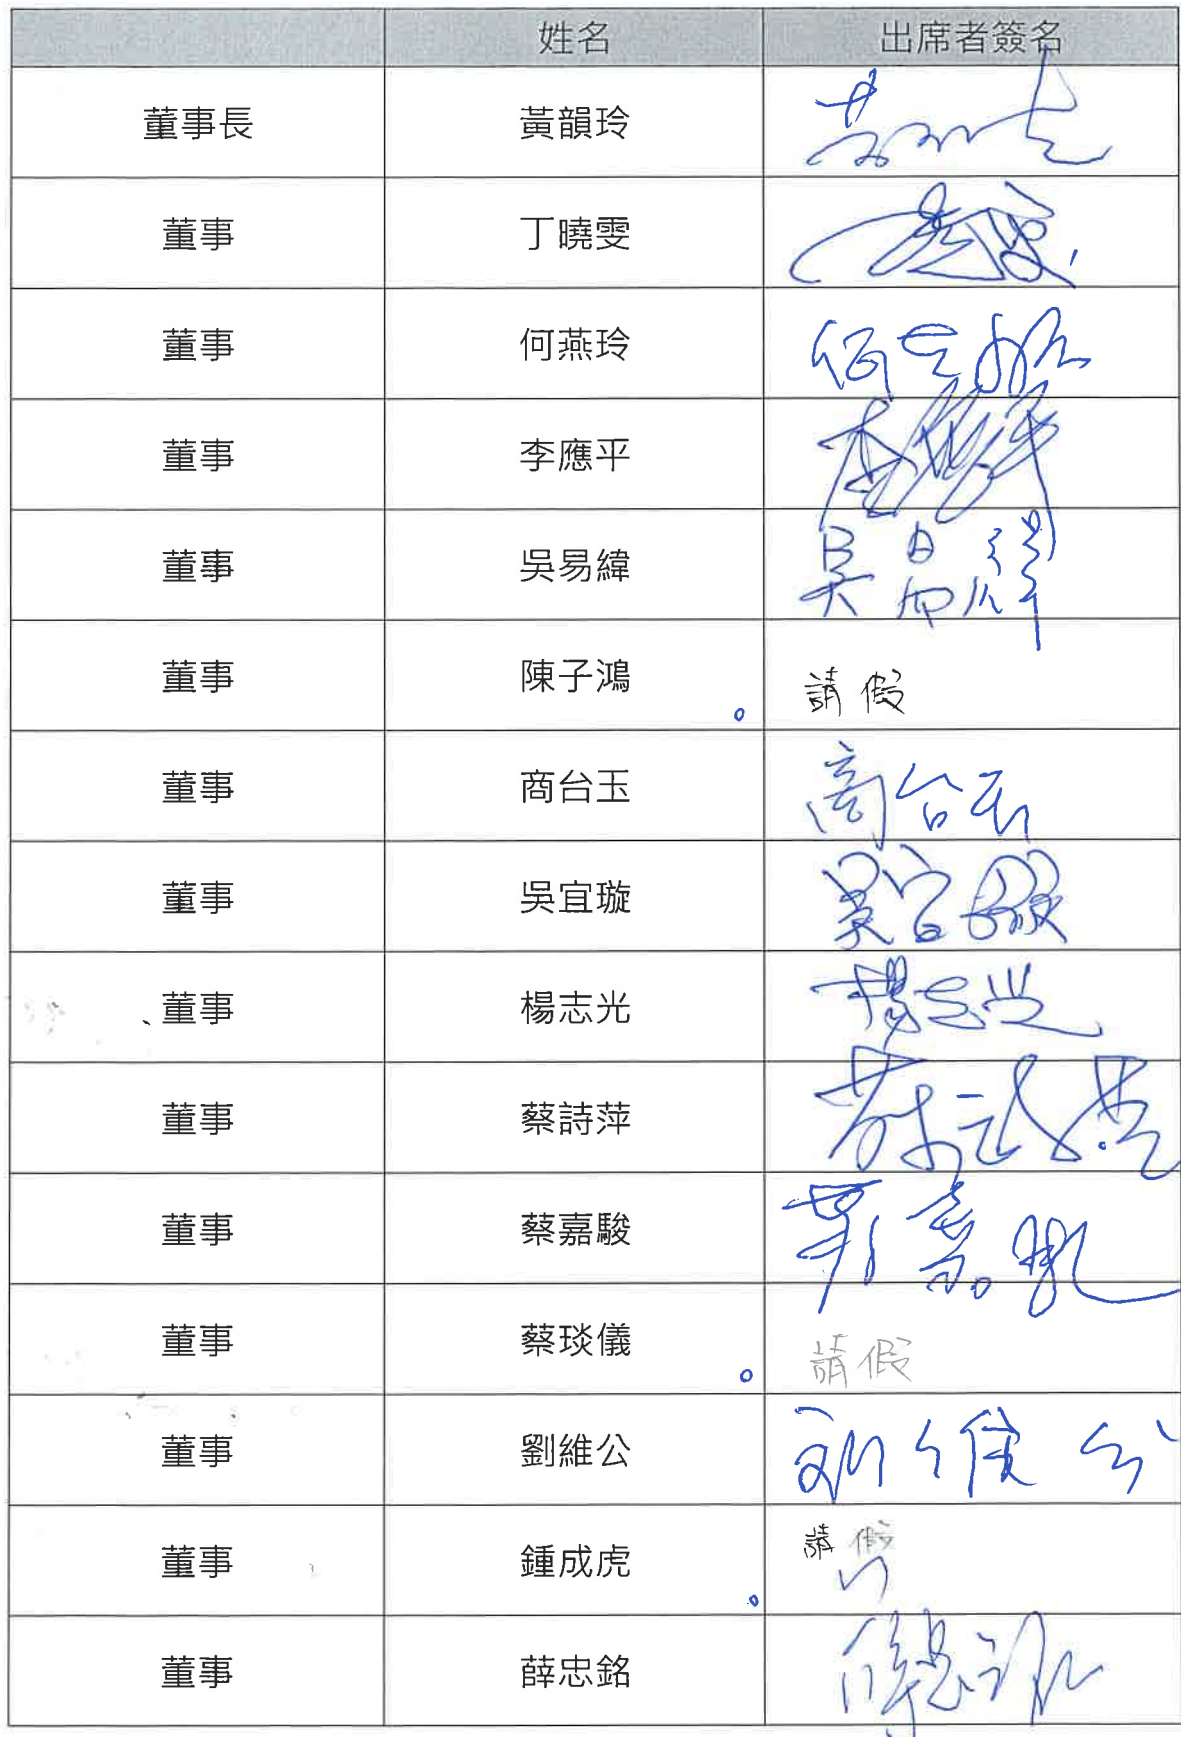 姓名 出席者簽名
董事長 黃韻玲
董事 丁曉雯
董事 何燕玲 何燕玲
董事 李應平 李應平
董事 吳易緯 吳易緯
董事 陳子鴻 請假
董事 商台玉 商台玉
董事 吳宜璇 吳宜璇
董事 楊志光 楊志光
董事 蔡詩萍 蔡詩萍
董事 蔡嘉駿 蔡嘉駿
董事 蔡琰儀 請假
董事 劉維公 劉維公
董事 鍾成虎 請假
董事 薛忠銘 薛忠銘